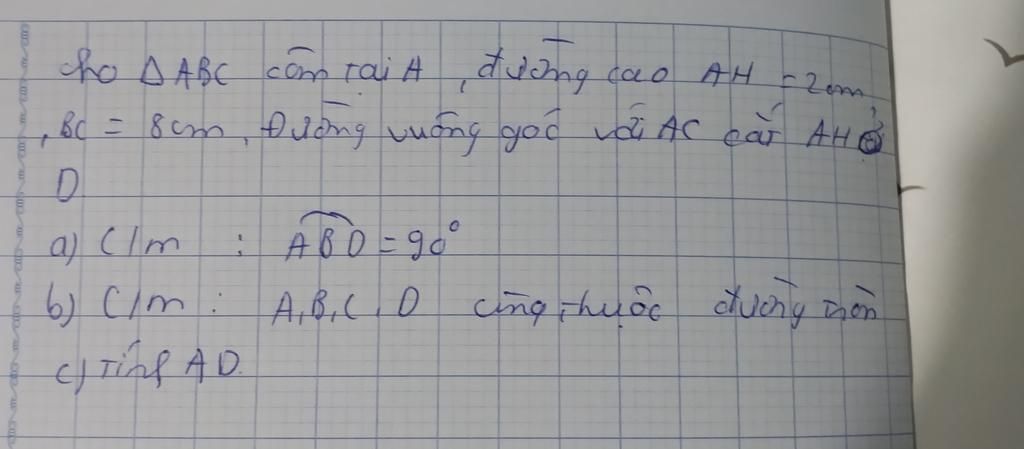 cho △ABC cân tại A, đường cao AH = 2cm
, BC = 8cm, Đường vuông góc với AC cắt AH ở
D
a) C/m : ABD = 90°
b) C/m : A, B, C, D cùng thuộc đường tròn
c) Tính AD.